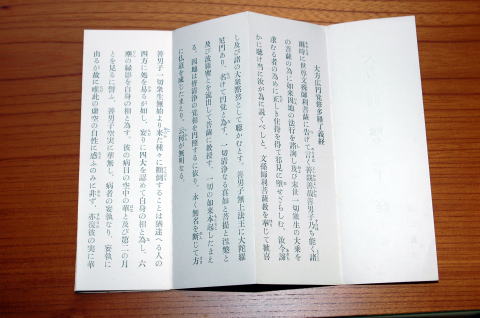 大方広円覚修多羅了義経
爾時に世尊文殊師利菩薩に告げて言く善哉善哉善男子乃ち能く諸
の菩薩の為に如来因地の法行を諮詢し及び末世一切衆生の大乗を
求むる者の為めに正しき住持を得て邪見に堕せざらしむ、汝今諦
かに聴け当に汝が為に説くべしと、文殊師利菩薩教を奉じて歓喜
し及び諸の大衆黙然として聴かむとす。善男子無上法王に大陀羅
尼門あり、名けて円覚と為す、一切清浄なる真如と菩提と涅槃と
及び波羅蜜とを流出して菩薩に教授す、一切の如来本起したまえ
る、因地は皆清浄の覚相を円照するに依り、永く無明を断じて方
に仏道を成じたまえり、云何が無明なる、
善男子一切衆生無始より来た種々に顛倒することは猶迷へる人の
四方に処を易るが如し、妄りに四大を認めて自身の相と為し、六
塵の縁影を自身の相と為す、彼の病目の空中の華と及び第二の月
とを見るに譬ふ、善男子空実に華無し、病者の妄執なり、妄執に
由るが故に唯此の虚空の自性に惑ふのみに非ず、亦復彼の実に華